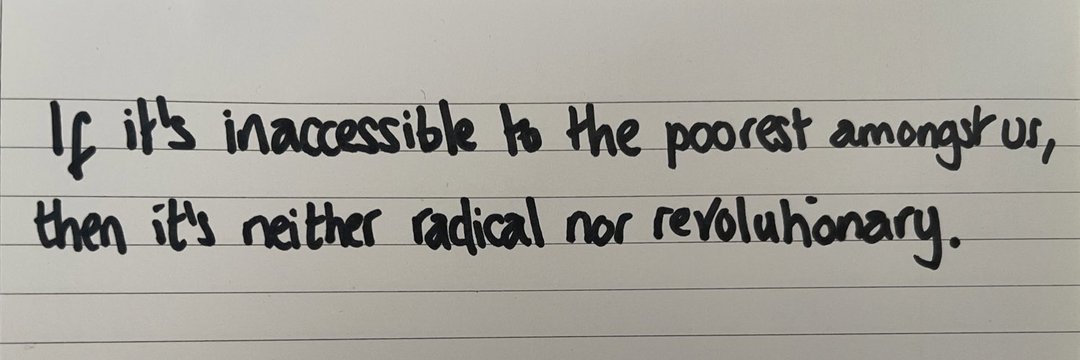 If it's inaccessible to the poorest amongst us,
then it's neither radical nor revolutionary.